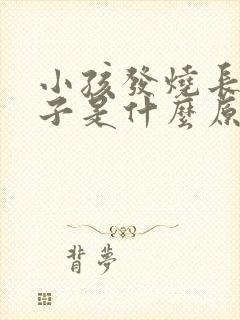 小孩發燒長
子是什麼原
背夢